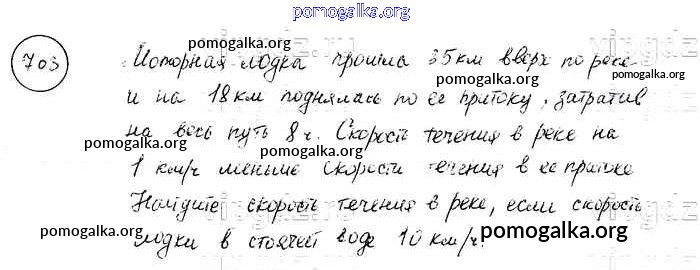 pomogalka.org
703 Моторная лодка прошла 35 км вверх по реке
и на 18 км поднялась по ее притоку, затратив
на весь путь 8 ч. Скорость течения в реке на
1 км/ч меньше скорости течения в ее притоке
Найдите скорость течения в реке, если скорость
лодки в стоячей воде 10 км/ч.
pomogalka.org
pomogalka.org
pomogalka.org
pomogalka.org
pomogalka.org
pomogalka.org
pomogalka.org
pomogalka.org